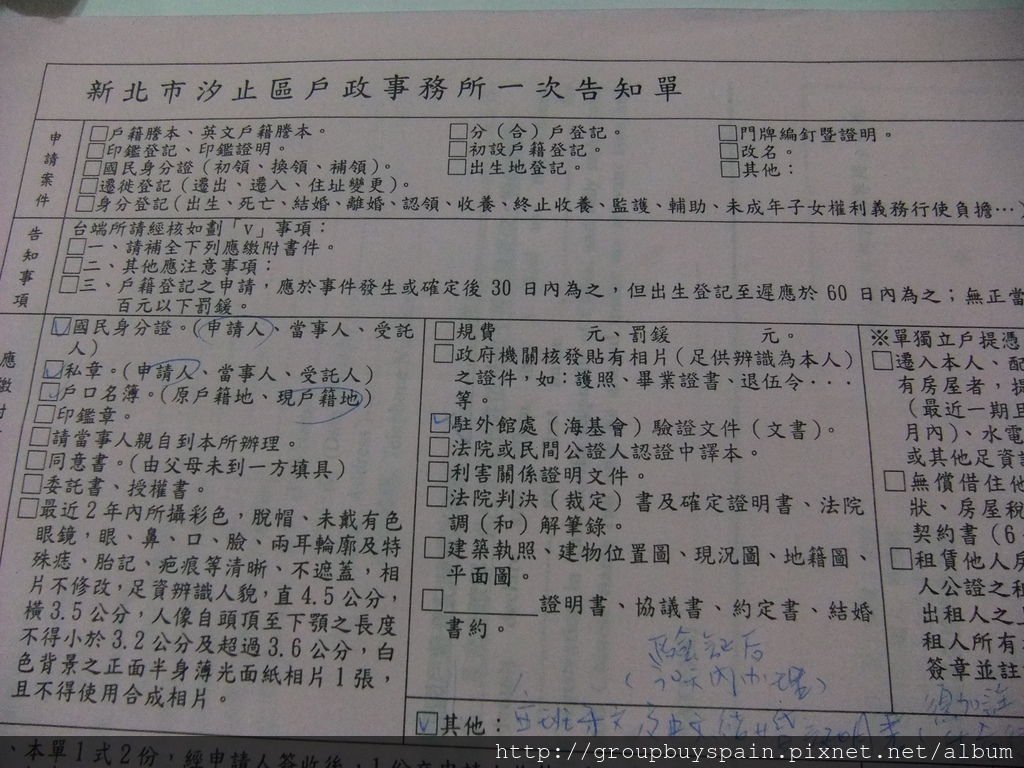 新北市汐止區戶政事務所一次告知單
申請案件
□戶籍謄本、英文戶籍謄本。
□分（合）戶登記。
□門牌編釘暨證明。
□印鑑登記、印鑑證明。
□初設戶籍登記。
□改名。
□國民身分證（初領、換領、補領）。
□出生地登記。
□其他：
□遷徙登記（遷出、遷入、住址變更）。
□身分登記（出生、死亡、結婚、離婚、認領、收養、終止收養、監護、輔助、未成年子女權利義務行使負擔…）
告知事項
台端所請經核如劃「v」事項：
□一、請補全下列應繳附書件。
□二、其他應注意事項：
□三、戶籍登記之申請，應於事件發生或確定後 30 日內為之，但出生登記至遲應於 60 日內為之；無正當
百元以下罰鍰。
應繳附
☑國民身分證。（申請人、當事人、受託
人）
☑私章。（申請人、當事人、受託人）
☑戶口名簿。（原戶籍地、現戶籍地）
□印鑑章。
□請當事人親自到本所辦理。
□同意書。（由父母未到一方填具）
□委託書、授權書。
□最近 2 年內所攝彩色，脫帽、未戴有色
眼鏡，眼、鼻、口、臉、兩耳輪廓及特
殊痣、胎記、疤痕等清晰、不遮蓋，相
片不修改，足資辨識人貌，直 4.5 公分，
橫 3.5 公分，人像自頭頂至下顎之長度
不得小於 3.2 公分及超過 3.6 公分，白
色背景之正面半身薄光面紙相片 1 張，
且不得使用合成相片。
□規費 元、罰鍰 元。
□政府機關核發貼有相片（足供辨識為本人）
之證件，如：護照、畢業證書、退伍令···
等。
☑駐外館處（海基會）驗證文件（文書）。
□法院或民間公證人認證中譯本。
□利害關係證明文件。
□法院判決（裁定）書及確定證明書、法院
調（和）解筆錄。
□建築執照、建物位置圖、現況圖、地籍圖、
平面圖。
□________證明書、協議書、約定書、結婚
書約。
驗証后
（30天內办理）
☑其他：西班牙文及中文結婚証明書
※單獨立戶提憑
□遷入本人、配
有房屋者，提
（最近一期且
月內）、水電
或其他足資
□無償借住他
狀、房屋稅
契約書（6
□租賃他人房
人公證之租
出租人之
租人所有
簽章並註
須加註
、本單 1 式 2 份，經申請人簽收後，1 份交申請人
http://groupbuyspain.pixnet.net/album